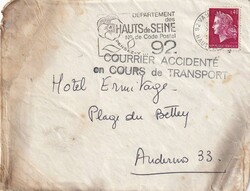 DÉPARTEMENT
des
HAUTS de SEINE
N° de Code Postal
92.
COURRIER ACCIDENTÉ
en COURS de TRANSPORT
Hotel Ermitage.
Plage du Betey
Andernos 33.